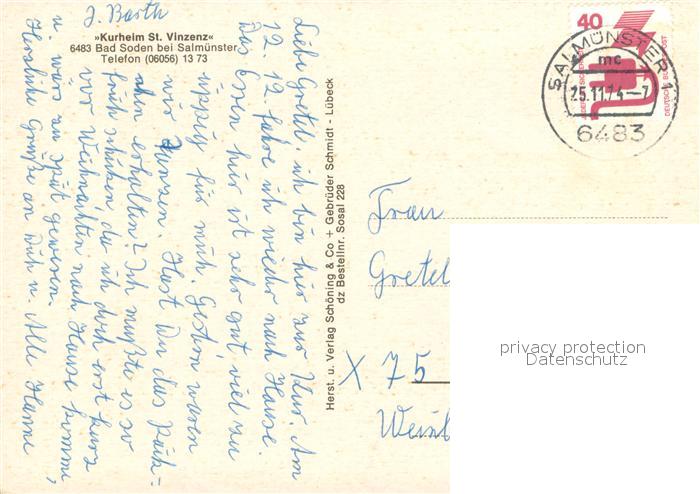 J. Barth
»Kurheim St. Vinzenz«
6483 Bad Soden bei Salmünster
Telefon (06056) 13 73
Liebe Gretel, ich bin hier zur Kur. Am
12. 12. fahre ich wieder nach Hause.
Das Essen hier ist sehr gut viel zu
üppig für mich. Gestern waren
wir
Hast Du das Päck-
chen erhalten? Ich mußte es so
früh schicken, da ich doch erst kurz
vor Weihnachten nach Hause komme,
u. wär zu spät gewesen.
Herzliche Grüße an Dich u. Alle Hanne
Herst. u. Verlag Schöning & Co + Gebrüder Schmidt - Lübeck
dz Bestellnr. Sosal 228
40
DEUTSCHE BUNDESPOST
SALMÜNSTER 1
mc
25.11.74-7
6483
Frau
Gretel
X 75
privacy protection
Datenschutz